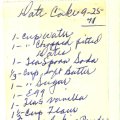 Date Cake 9-25-
78
1-Cup Water
1- " Chopped pitted
Dates
1-Teaspoon Soda
1/2-Cup Soft Butter
1- " Sugar
1-Egg
1-Tea S Vanilla
1 1/2 Cup Flour